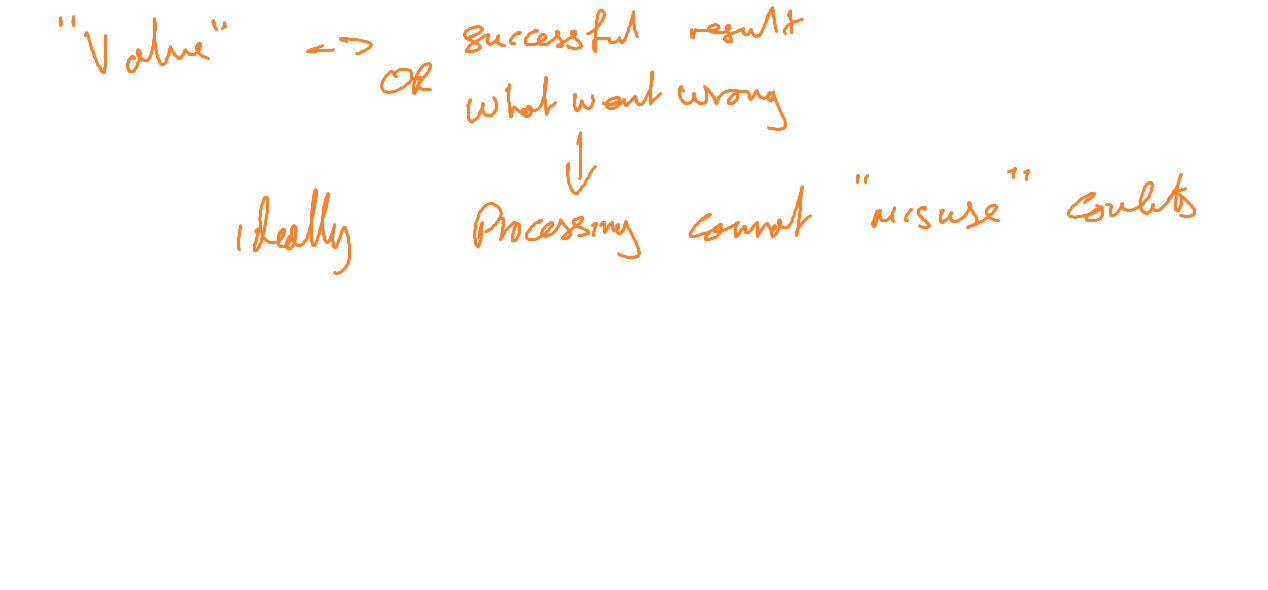 "Value" <-> successful result
OR what went wrong
↓
ideally Processing cannot "misuse"